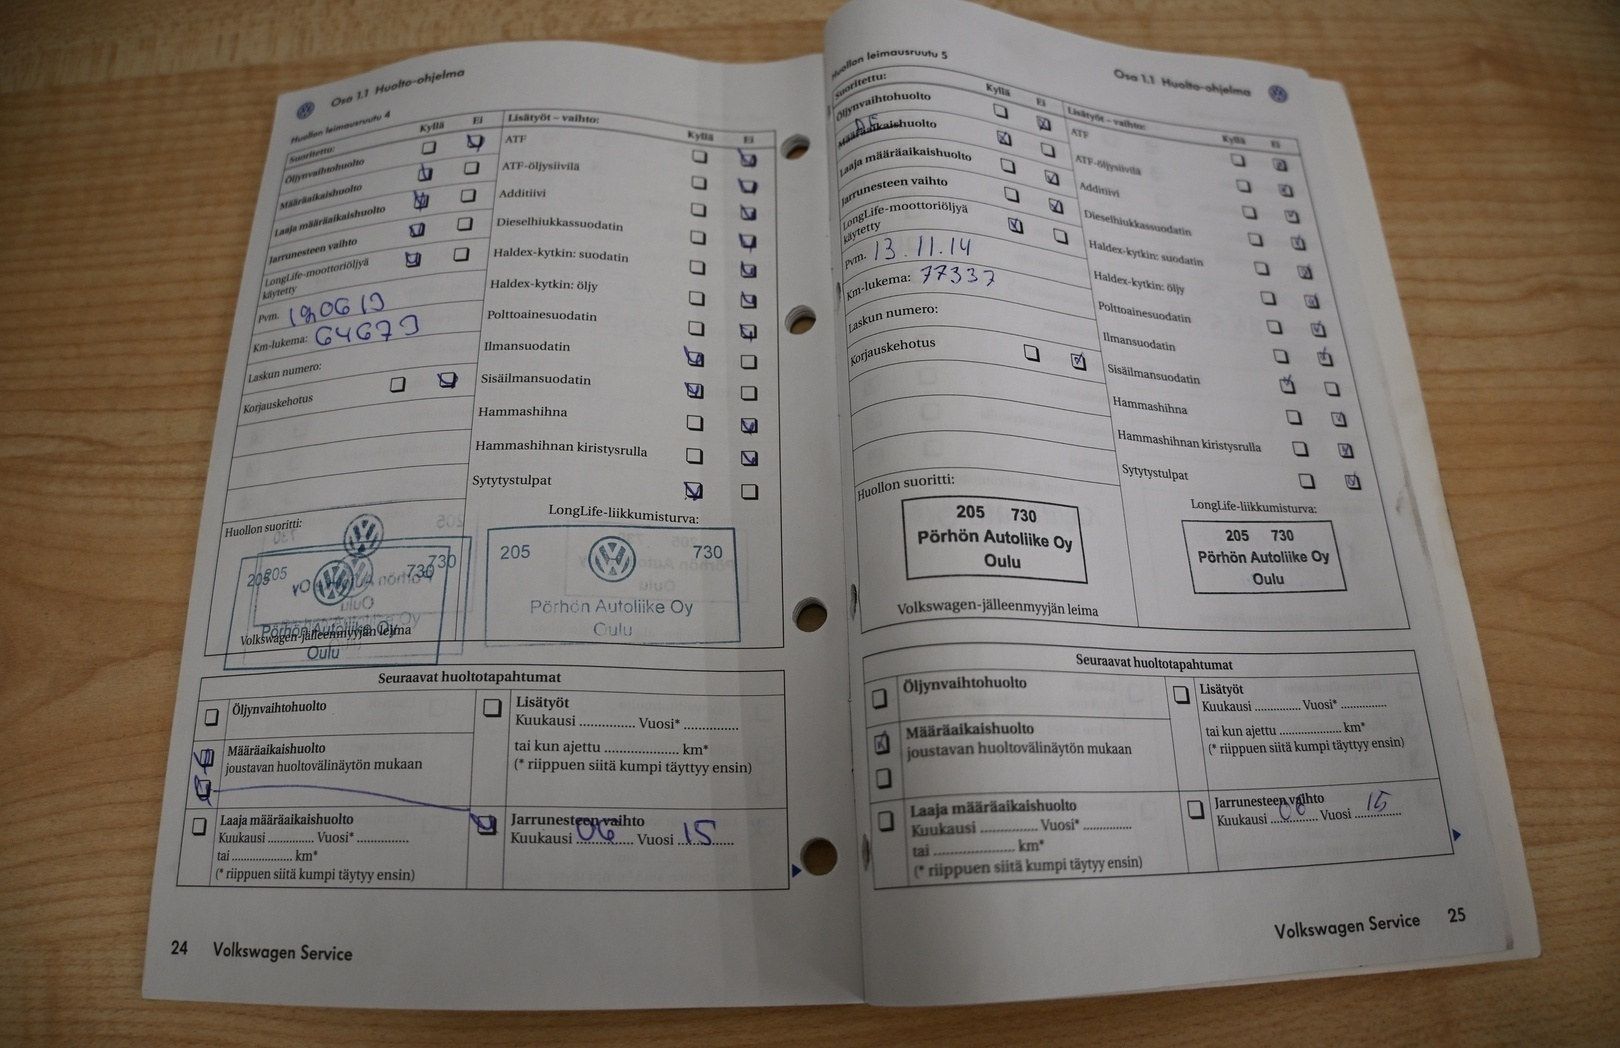 Osa 1.1 Huolto-ohjelma
Huollon leimausruutu 4
Suoritettu: Kyllä Ei
Öljynvaihtohuolto
Määräaikaishuolto
Laaja määräaikaishuolto
Jarrunesteen vaihto
LongLife-moottoriöljyä
käytetty
Pvm.
Km-lukema: 64679
Laskun numero:
Korjauskehotus
Lisätyöt – vaihto: Kyllä Ei
ATF
ATF-öljysiivilä
Additiivi
Dieselhiukkassuodatin
Haldex-kytkin: suodatin
Haldex-kytkin: öljy
Polttoainesuodatin
Ilmansuodatin
Sisäilmansuodatin
Hammashihna
Hammashihnan kiristysrulla
Sytytystulpat
Huollon suoritti:
205 730
205 730
Pörhön Autoliike Oy
Oulu
Volkswagen-jälleenmyyjän leima
LongLife-liikkumisturva:
205 730
Pörhön Autoliike Oy
Oulu
Seuraavat huoltotapahtumat
Öljynvaihtohuolto
Määräaikaishuolto
joustavan huoltovälinäytön mukaan
Laaja määräaikaishuolto
Kuukausi .............. Vuosi* ...............
tai ..................... km*
(* riippuen siitä kumpi täytyy ensin)
Lisätyöt
Kuukausi ............... Vuosi* ...............
tai kun ajettu .................... km*
(* riippuen siitä kumpi täyttyy ensin)
Jarrunesteen vaihto
Kuukausi 06 Vuosi 15
24 Volkswagen Service
Osa 1.1 Huolto-ohjelma
Huollon leimausruutu 5
Suoritettu: Kyllä Ei
Öljynvaihtohuolto
Määräaikaishuolto
Laaja määräaikaishuolto
Jarrunesteen vaihto
LongLife-moottoriöljyä
käytetty
Pvm. 13.11.14
Km-lukema: 77337
Laskun numero:
Korjauskehotus
Lisätyöt – vaihto: Kyllä Ei
ATF
ATF-öljysiivilä
Additiivi
Dieselhiukkassuodatin
Haldex-kytkin: suodatin
Haldex-kytkin: öljy
Polttoainesuodatin
Ilmansuodatin
Sisäilmansuodatin
Hammashihna
Hammashihnan kiristysrulla
Sytytystulpat
Huollon suoritti:
205 730
Pörhön Autoliike Oy
Oulu
Volkswagen-jälleenmyyjän leima
LongLife-liikkumisturva:
205 730
Pörhön Autoliike Oy
Oulu
Seuraavat huoltotapahtumat
Öljynvaihtohuolto
Määräaikaishuolto
joustavan huoltovälinäytön mukaan
Laaja määräaikaishuolto
Kuukausi .............. Vuosi* ..............
tai ..................... km*
(* riippuen siitä kumpi täytyy ensin)
Lisätyöt
Kuukausi .............. Vuosi* ..............
tai kun ajettu .................... km*
(* riippuen siitä kumpi täyttyy ensin)
Jarrunesteen vaihto
Kuukausi 06 Vuosi 15
Volkswagen Service 25